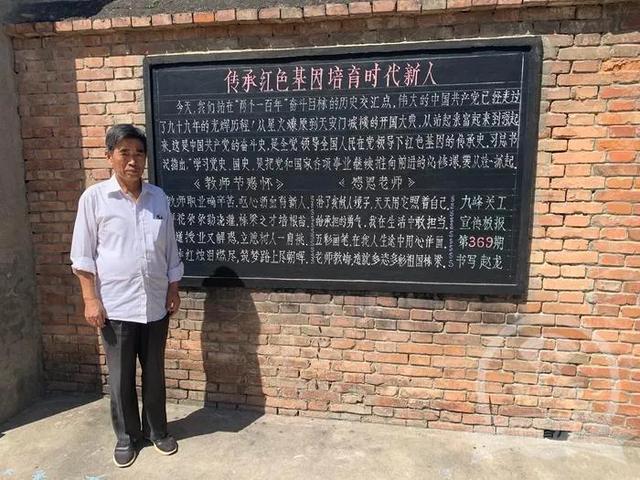 传承红色基因培育时代新人
今天，我们站在"两个一百年"奋斗目标的历史交汇点，伟大的中国共产党已经走过
了九十九年的光辉历程！从星火燎原到天安门城楼的开国大典，从站起来富起来到强起
来，这是中国共产党的奋斗史，是全党领导全国人民在党领导下红色基因的传承史。习总书
记指出，"学习党史、国史，是把党和国家各项事业继续推向前进的必修课
≪教师节感怀≫ ≪感恩老师≫
教师职业确辛苦，呕心沥血育新人。
栋梁之才培根苗。
道授业又解惑，立德树人一肩挑。
红烛泪燃尽，筑梦路上尽朝晖。
天天用它照着自己。
给承担的勇气，我在生活中敢担当。
五彩画笔，在我人生途中用心作画。
老师教诲，造就多姿多彩祖国栋梁。
九峰关工
宣传板报
第369期
书写赵龙